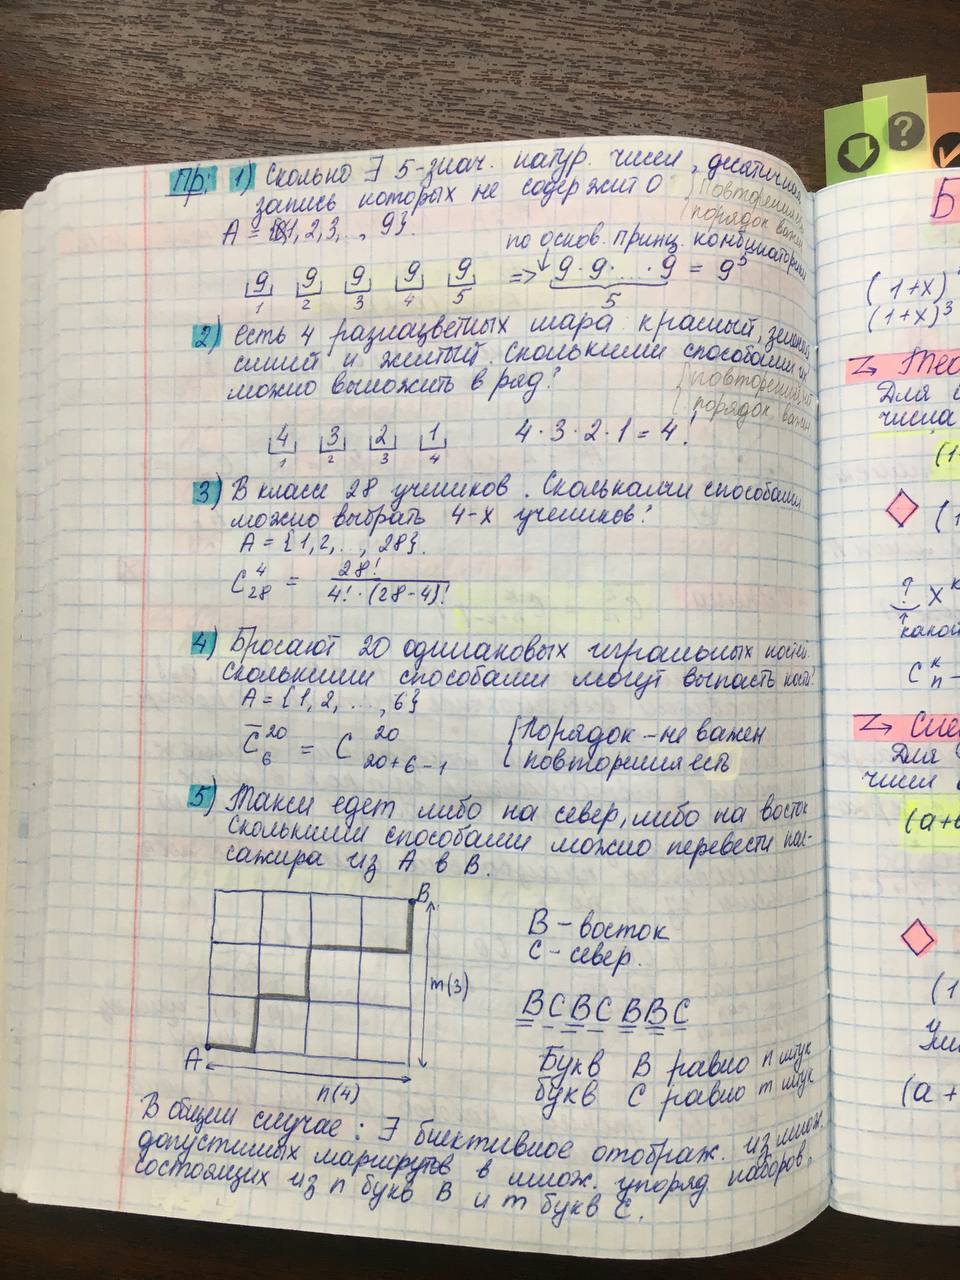 Пр: 1) Сколько ∃ 5-знач. натур. чисел, десятичная
запись которых не содержит 0
(повторения есть
порядок важен
A = {1, 2, 3, .., 9}.
по основ. принц. комбинаторики
9 9 9 9 9 => 9·9·...·9 = 9^5
1 2 3 4 5
5
2) есть 4 разноцветных шара: красный, зеленый
синий и желтый. Сколькими способами их
можно выложить в ряд?
(повторений нет
порядок важен
4 3 2 1 4·3·2·1 = 4!
1 2 3 4
3) В классе 28 учеников. Сколькими способами
можно выбрать 4-х учеников?
A = {1, 2, .., 28}.
C_28^4 = 28! / (4!·(28-4)!)
4) Бросают 20 одинаковых игральных костей.
Сколькими способами могут выпасть кости?
A = {1, 2, ..., 6}
C̅_6^20 = C_{20+6-1}^20
{Порядок - не важен
повторения есть
5) Такси едет либо на север, либо на восток
сколькими способами можно перевести пас-
сажира из А в В.
B
В - восток
С - север.
m(3)
ВСВСВВС
A
n(4)
Букв В равно n штук
букв С равно m штук
В общем случае: ∃ биективное отображ. из множ.
допустимых маршрутов в множ. упоряд наборов,
состоящих из n букв В и m букв С.
Б
(1+x)
(1+x)^3
Тео
Для
числа
(1
?
x^k
какой
C_n^k -
Для
чисел
(a+
(1
(a +